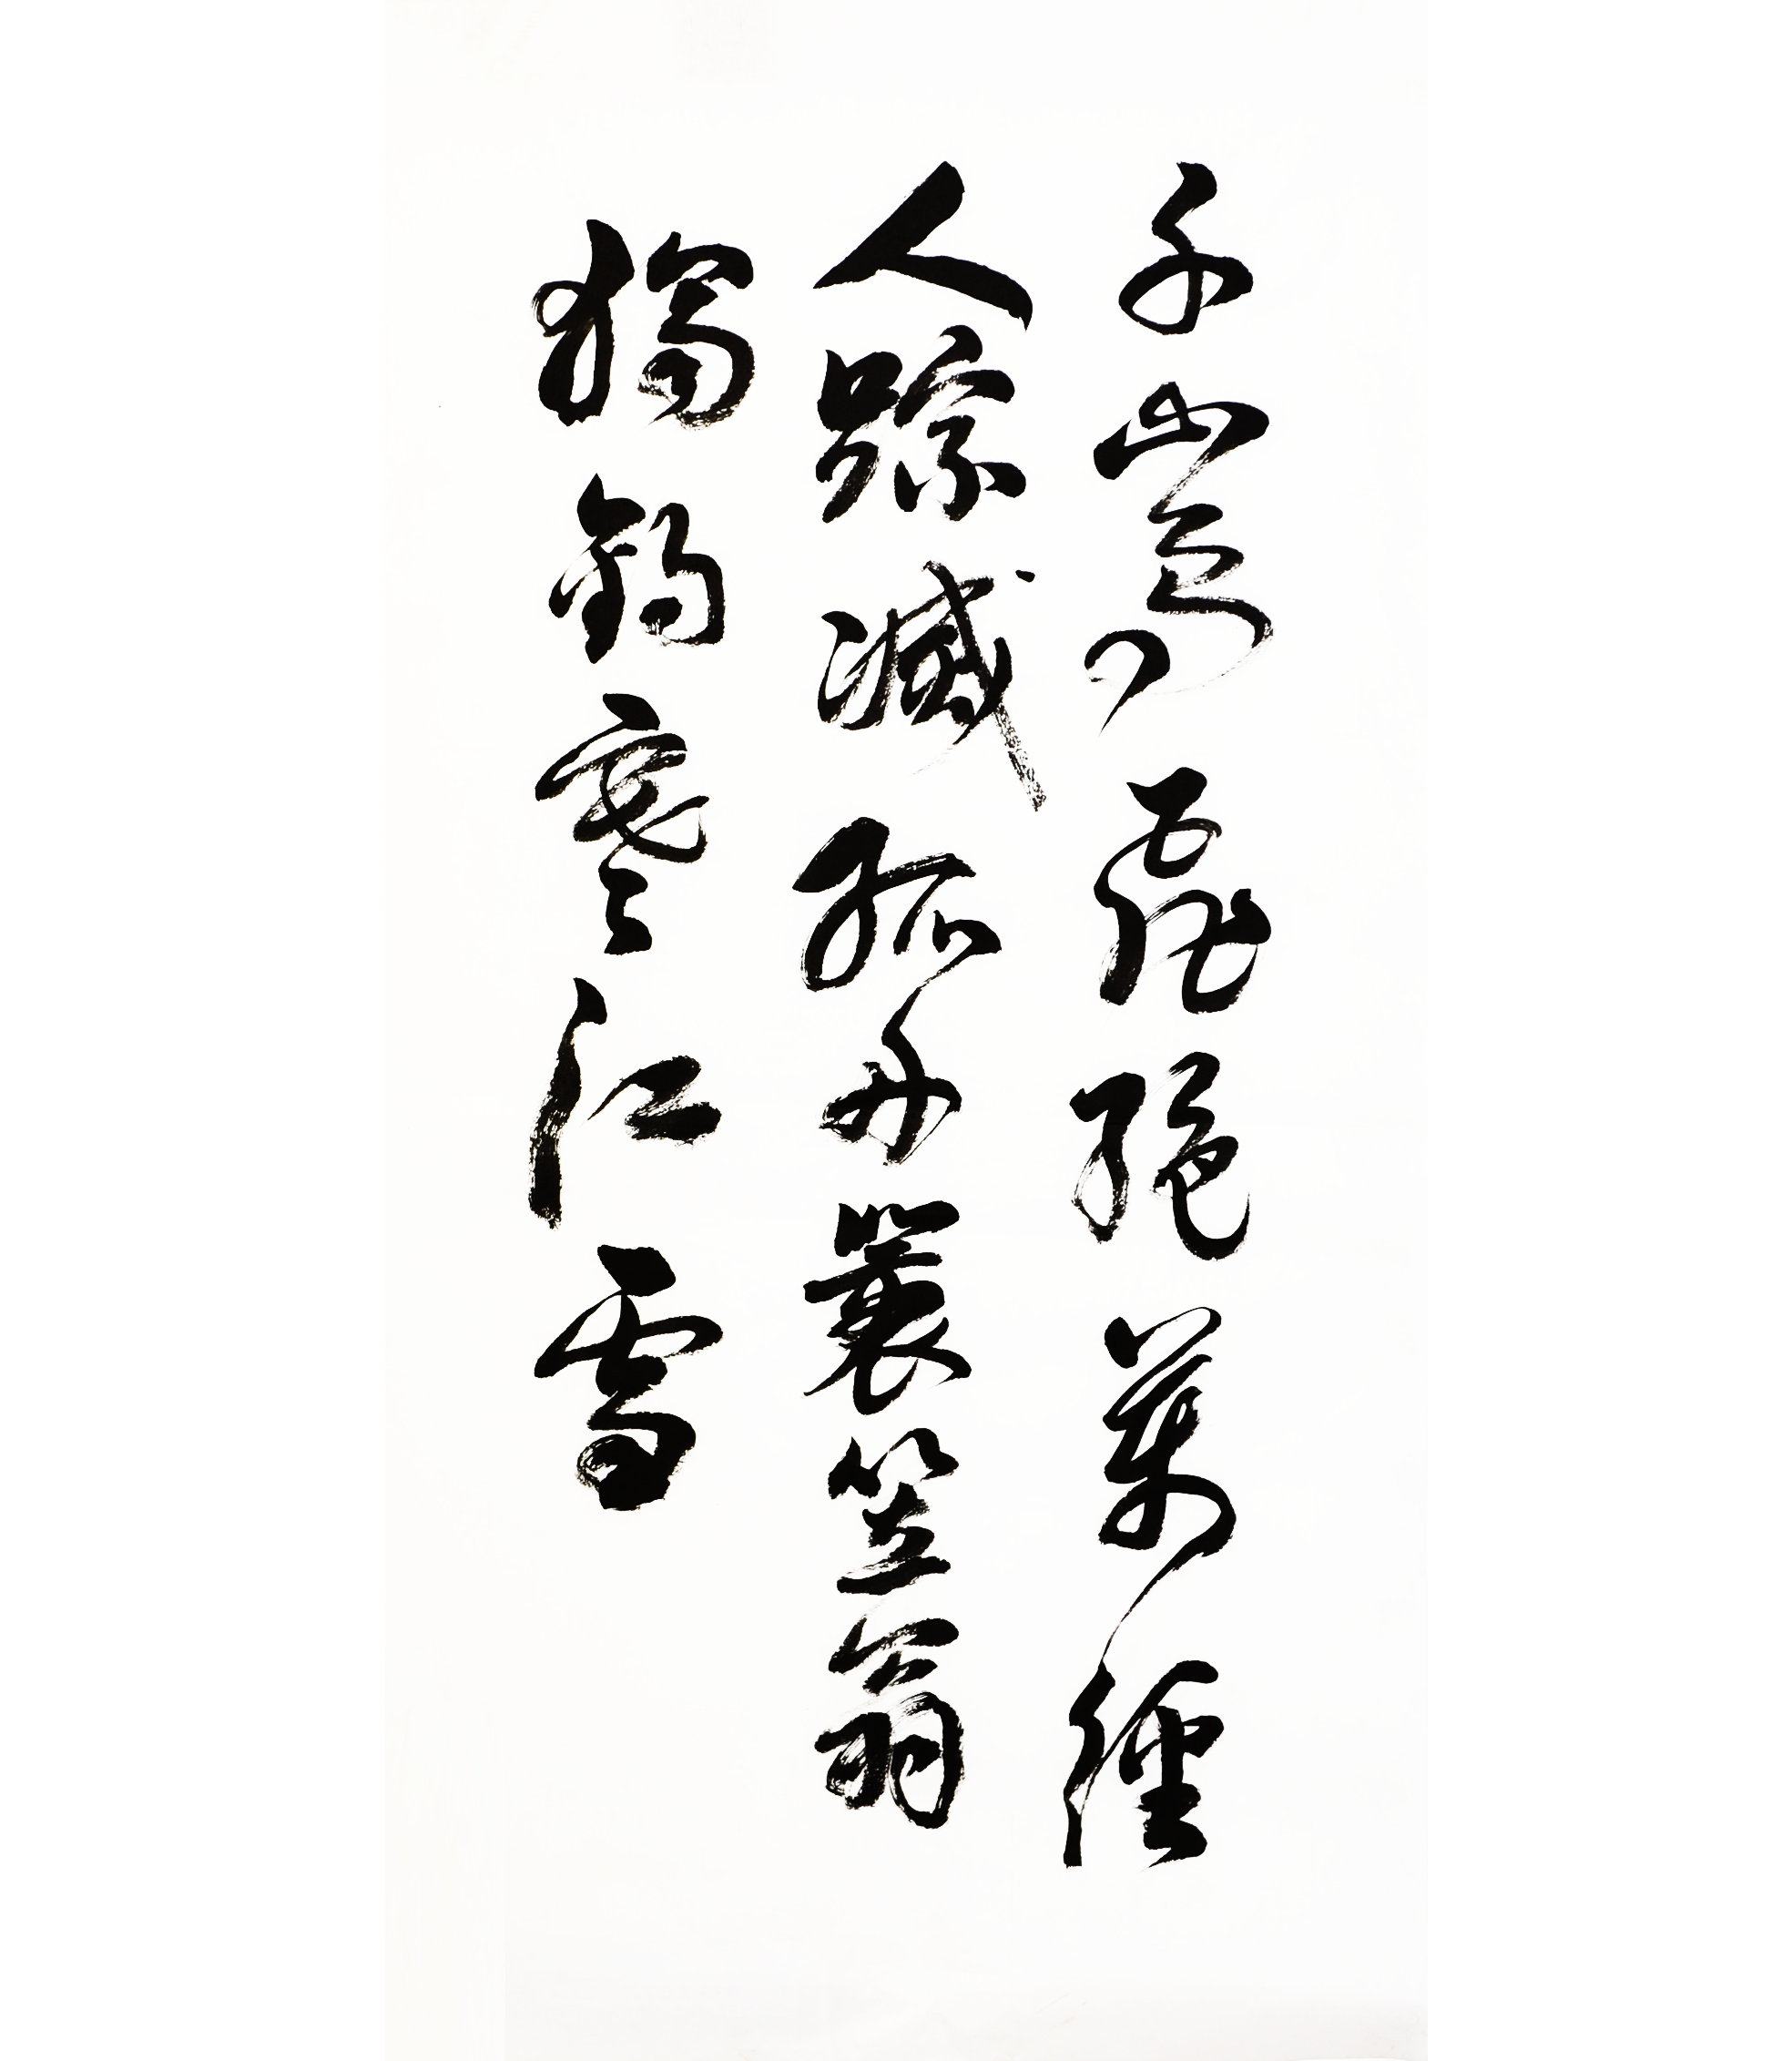 千山鳥飛絕萬徑
人踪滅孤舟蓑笠翁
獨釣寒江雪